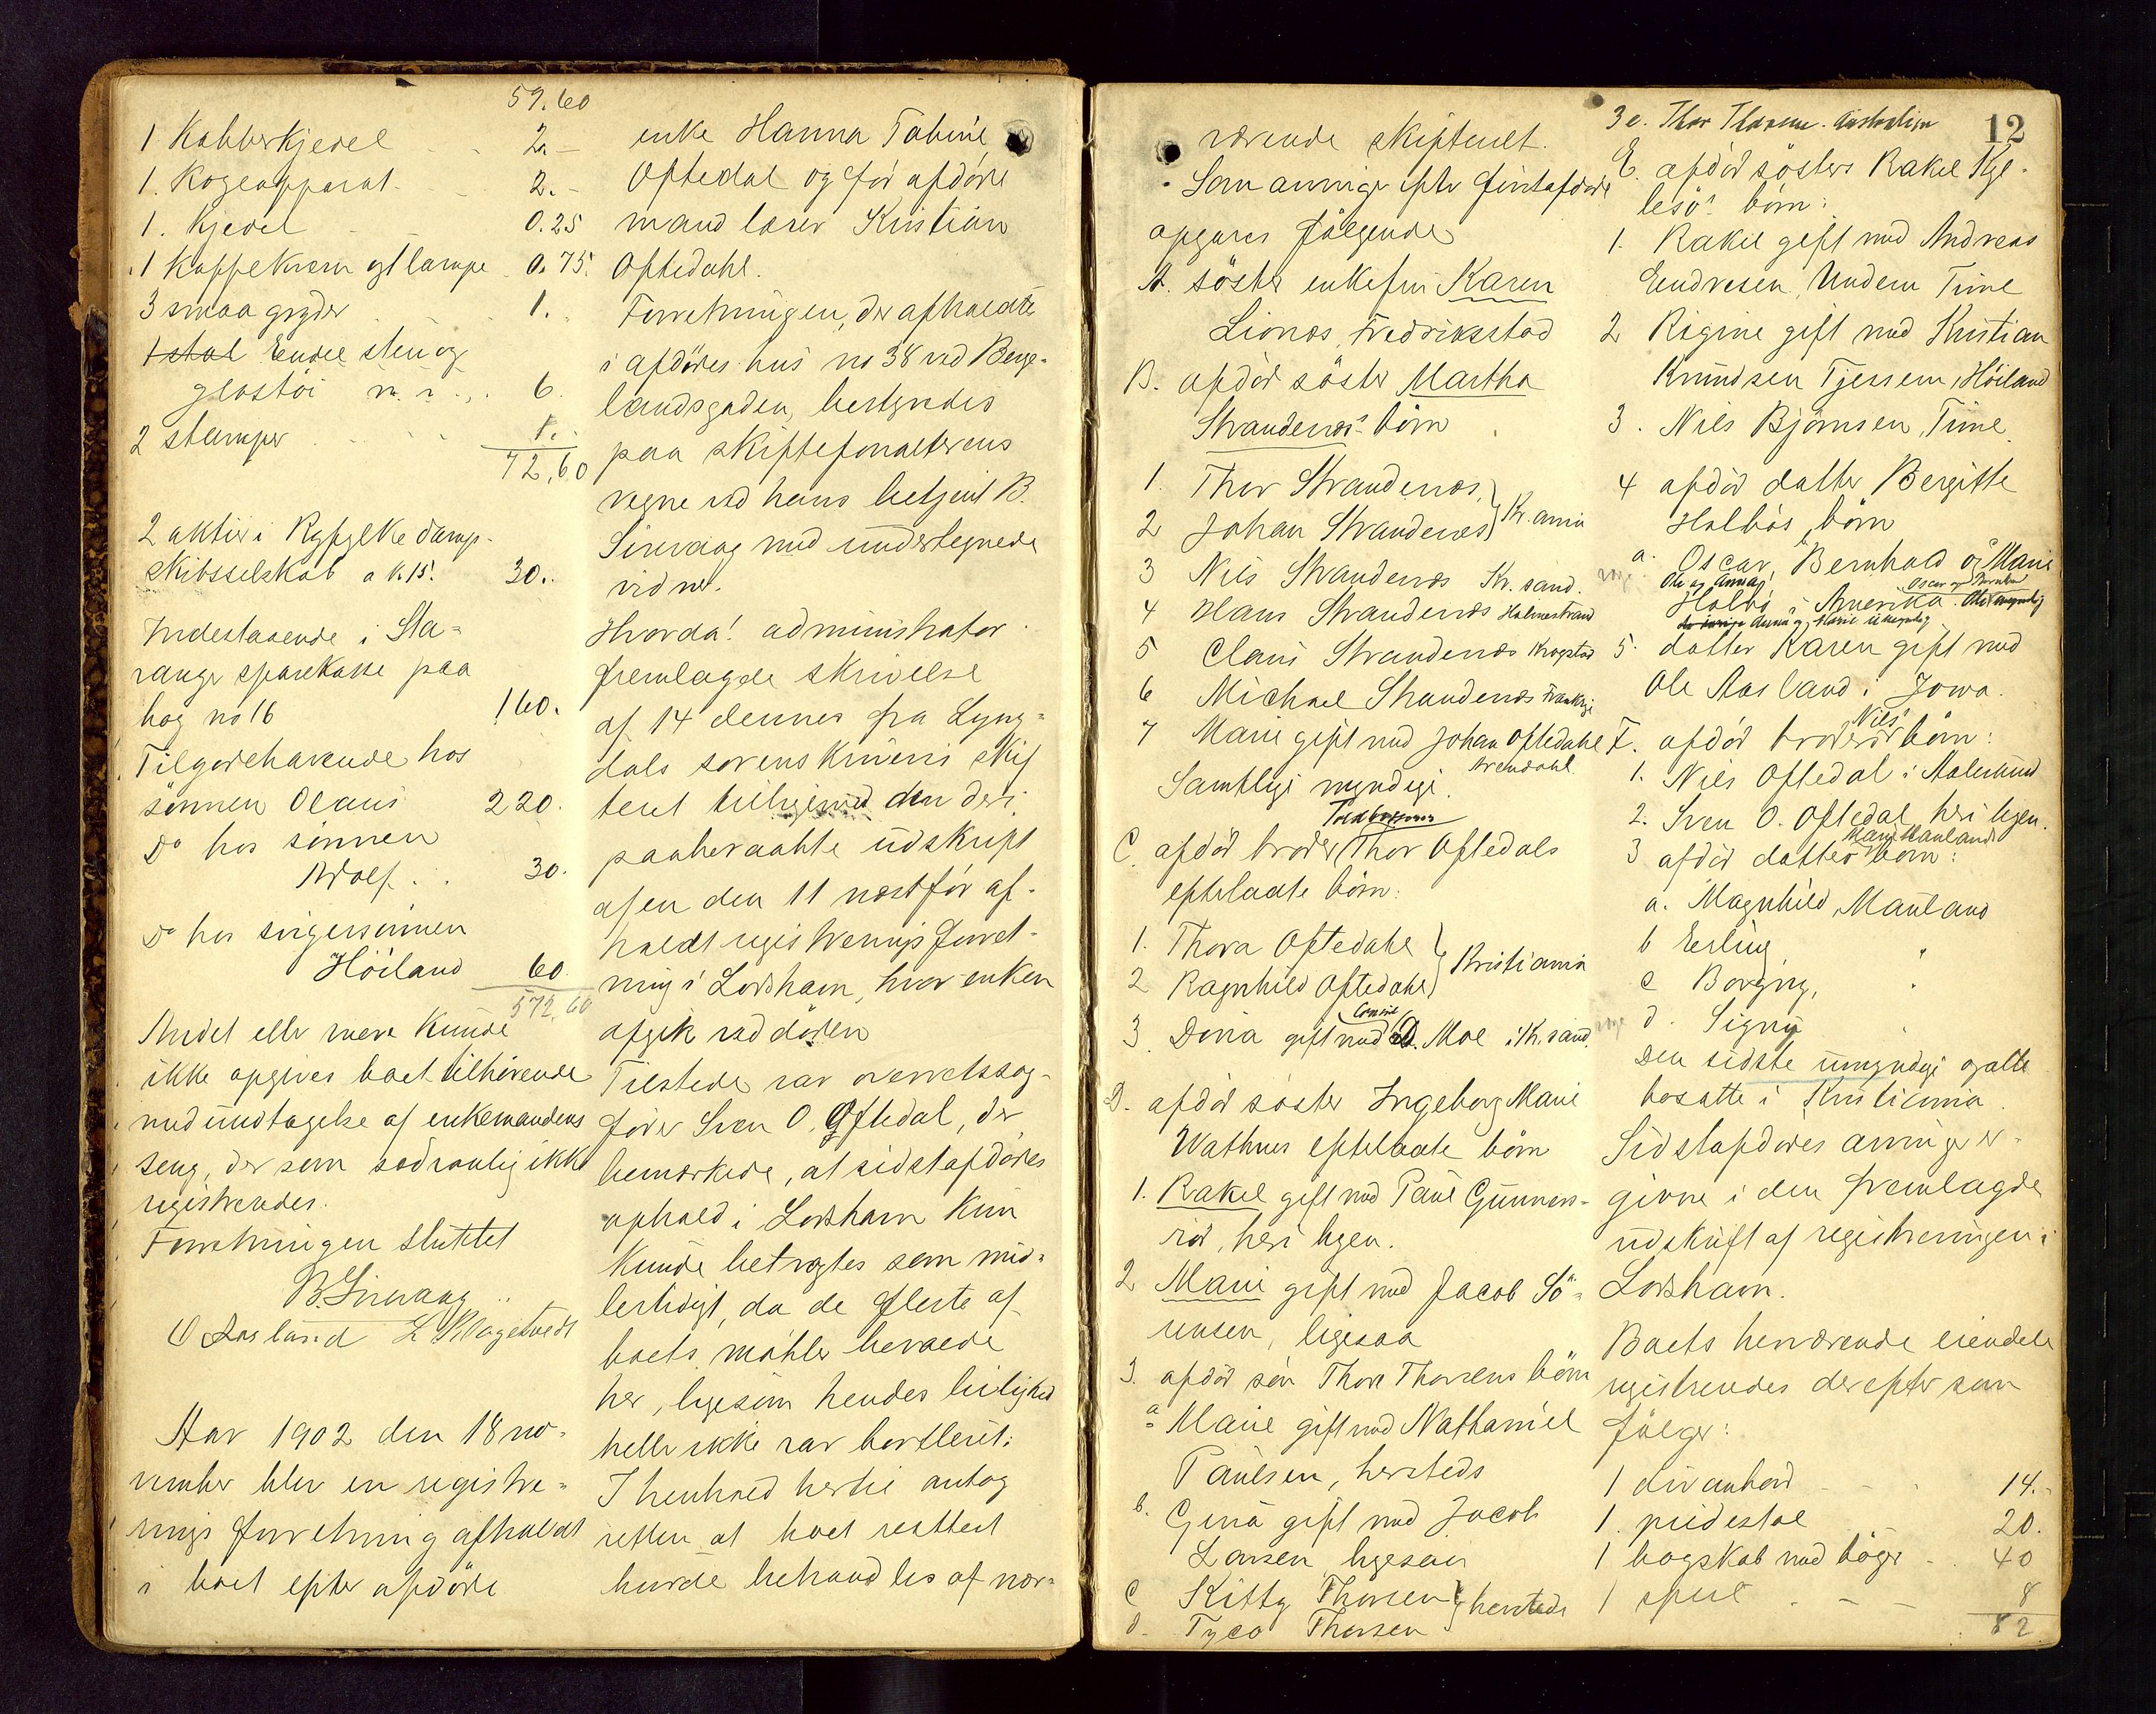 59.60
1 Kobberkjedel 2.-
1. Kogeapparat 2.-
1. Kjedel 0.25
1 Kaffekvern og 1 lampe 0.75.
3 smaa gryder 1.
1 stol Endel sten og
glastöi m. v. 6.
2 stamper 1.
72,60
2 aktier i Ryfylke damp-
skibsselskab a k. 15. 30.
Indestaaende i Sta-
vanger sparekasse paa
bog no 16 160.
Tilgodehavende hos
sönnen Olaus 220.
Do hos sönnen
Adolf 30.
Do hos svigersönnen
Höiland 60.
572,60
Andet eller mere kunde
ikke opgives boet tilhörende
med undtagelse af enkemandens
seng, der som sedvanlig ikke
registreredes.
Forretningen sluttet
B. Sirevaag
O Aasland L Hagetvedt
Aar 1902 den 18 no-
vember blev en registre-
rings forretning afholdt
i boet efter afdöde
enke Hanna Tobine
Oftedal og för afdöde
mand lærer Kristian
Oftedahl.
Forretningen, der afholdte
i afdödes hus no 38 ved Berge-
landsgaden, bestyredes
paa skifteforvalterens
vegne ved hans betjent B.
Sirevaag med undertegnede
vidner.
Hvorda! administrator
fremlagde skrivelse
af 14 dennes fra Lyng-
dals sorenskriveris skif
teret tilligemed den deri
paaberaabte udskrift
af en den 11 næstför af-
holdt registreringsforret-
ning i Loshavn, hvor enken
afgik ved döden
Tilstede var overretssag-
förer Sven O. Oftedal, der
bemærkede, at sidstafdödes
ophold i Loshavn kun
kunde betragtes som mid-
lertidigt, da de fleste af
boets möbler beroede
her, ligesom hendes leilighed
heller ikke var bortleiet.
I henhold hertil antog
retten at boet rettest
burde behandles af nær-
værende skifteret.
Som arvinger efter förstafdöde
opgaves fölgende
A. söster enkefru Karen
Lionæs, Fredrikstad
B. afdöd söster Martha
Strandenæs' börn
1. Thor Strandenæs,
2 Johan Strandenæs } Kr.ania
3 Nils Strandenæs Kr. sand.
4 Hans Strandenæs Holmestrand
5 Claus Strandenæs Kragstad
6 Michael Strandenæs Frankrige
7 Marie gift med Johan Oftedahl
Arendahl.
Samtlige myndige.
Toldkasserer
C. afdöd broder Thor Oftedals
efterladte börn:
1. Thora Oftedahl
2 Ragnhild Oftedahl } Kristiania
Consul
3. Dina gift med O. Moe i Kr. sand.
D. afdöd söster Ingeborg Marie
Wathnes efterladte börn
1. Rakel gift med Paul Gunners-
röd, her i byen.
2 Marie gift med Jacob Sö-
rensen, ligesaa
3. afdöd sön Thore Thorsens börn
a Marie gift med Nathaniel
Paulsen, hersteds
b. Gina gift med Jacob
Larsen, ligesaa
c Kitty Thorsen
d. Tyco Thorsen } hersteds
3 e. Thor Thorsen. Australien
12
E. afdöd sösters Rakel Kyl-
lesö's börn:
1. Rakel gift med Andreas
Endresen, Undem Time
2 Rigine gift med Kristian
Knudsen Tjessem, Höiland
3. Nils Björnsen, Time
4 afdöd datter Bergitte
Holbös, börn
a. Oscar, Bernhard og Marie
Ole og Anna,
Holbö i Amerika.
5. datter Karen gift med
Ole Aasland i Jowa.
Nils'
F. afdöd broders börn:
1. Nils Oftedal i Aalesund
2. Sven O. Oftedal her i byen.
3 afdöd datter Marie Mauland's börn:
a. Magnhild Mauland
b Erling "
c Borgny, "
d. Signy "
Den sidste umyndig og alle
bosatte i Kristiania.
Sidstafdödes arvinger er
givne i den fremlagde
udskrift af registreringen i
Loshavn.
Boets herværende eiendele
registreredes derefter som
fölger:
1 divanbord 14.-
1. pidestal 20.
1 bogskab med böger 40
1 speil 8
82